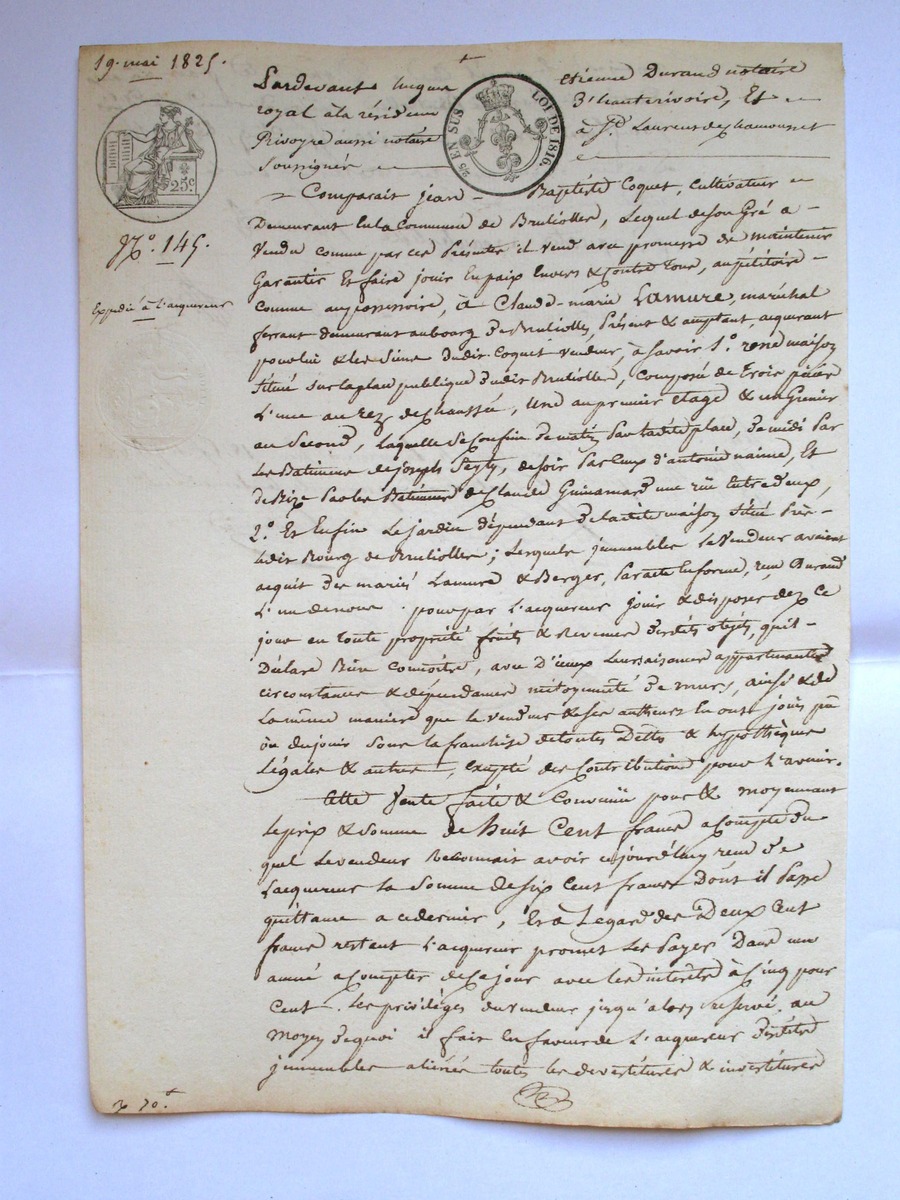 19. mai 1825.
Pardevant hugue Etienne Durand notaire
royal à la résidence d'hauterivoire, Et
Rivoyre aussi notaire à St. Laurent de chamousset
Soussignés
25 EN SUS LOI DE 1816.
25c
No. 145.
Expédié à l'acquereur
Comparait jean Baptiste Coquet, Cultivateur
Demeurant En la Commune de Brulioles, Lequel de son Gré a
Vendu comme par ces Présentes il vend avec promesse de maintenir
Garantir Et faire jouir En paix Envers & Contre tous, au pétitoire
comme au possessoire, à Claude-marie Lamure, maréchal
ferrant demeurant au bourg de Brulioles, Présent & acceptant, acquerant
pour lui & les Siens dudit Coquet vendeur, à Savoir 1o. une maison
Situé Sur la place publique dudit Brulioles, composé de trois pièces
L'une au rez de chaussée, Une au premier Etage & un Grenier
au Second, laquelle Se Confine de matin Par ladite place, de midi Par
Les Batimens de joseph de soir Par Ceux d'antoine Et
de Bize Par les Batimens de Claude Guinamard une rüe Entre deux,
2o. Et Enfin Le jardin dépendant de ladite maison Situé Près
Ledit Bourg de Brulioles; Lesquels immeubles le Vendeur avoient
acquit des mariés Lamure & Berger, Par acte En forme, reçu Durand
L'un de nous. pour par L'acquereur jouir & disposer dez Ce
jour en toute propriété fruits & Revenus desdits objets, qu'il
Déclare Bien Connoitre, avec D'iceux Leurs aisances appartenances
circonstances & dépendances mitoyenneté de murs, ainsi & de
La même maniere que le vendeur & Ses autheurs En ont jouis pû
ou du jouir Sous la franchise de toutes Dettes & hypothèques
Légales & autres, excepté des Contributions pour L'avenir.
Cette Vente faite & Convenüe pour & moyennant
Le prix & Somme de huit Cent francs a Compte du
quel Le vendeur Reconnait avoir cejourd'huy reçu de
L'acquereur la Somme de six Cent francs Dont il Passe
quittance a ce dernier, Et à Legard des Deux Cent
francs restant L'acquereur promet Les Payer Dans une
année a compter de Ce jour avec les interets à Cinq pour
Cent. Les privilèges du vendeur jusqu'alors reservé. au
moyen de quoi il fait En faveur de L'acquereur desdits
immeubles aliénés toutes les devestitures & investitures